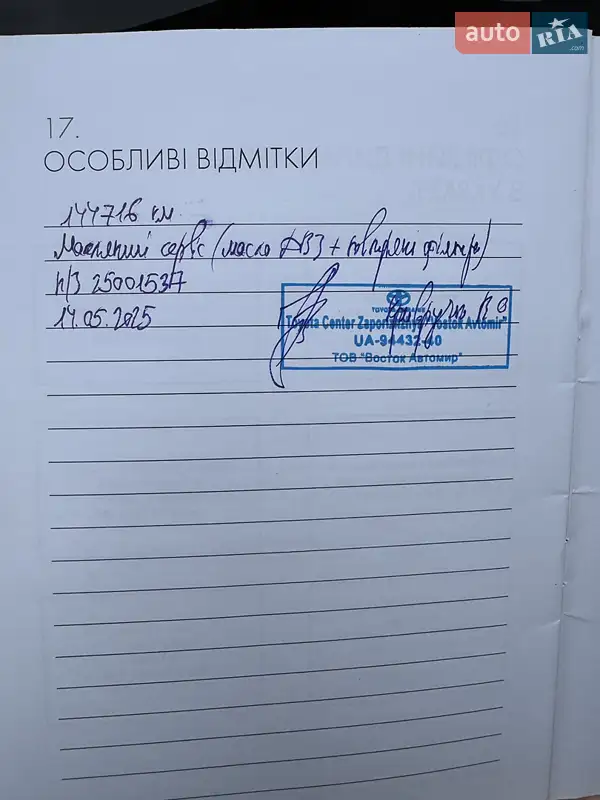 auto RIA .com
17.
ОСОБЛИВІ ВІДМІТКИ
144716 км.
сервіс (масло ДВЗ + повітряні фільтри)
н/З 2500153
14.05.2025
Toyota Center Zaporizhzhya "Vostok Avtomir"
UA-94432-40
ТОВ "Восток Автомир"